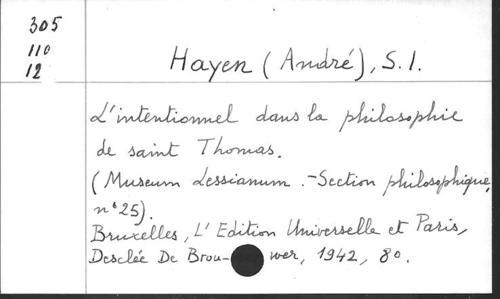 305
110
12
Hayen (André), S.I.
L'intentionnel dans la philosophie
de saint Thomas.
(Museum Lessianum.-Section philosophique,
n°25).
Bruxelles, L'Edition Universelle et Paris,
Desclée De Brou-wer, 1942, 8o.